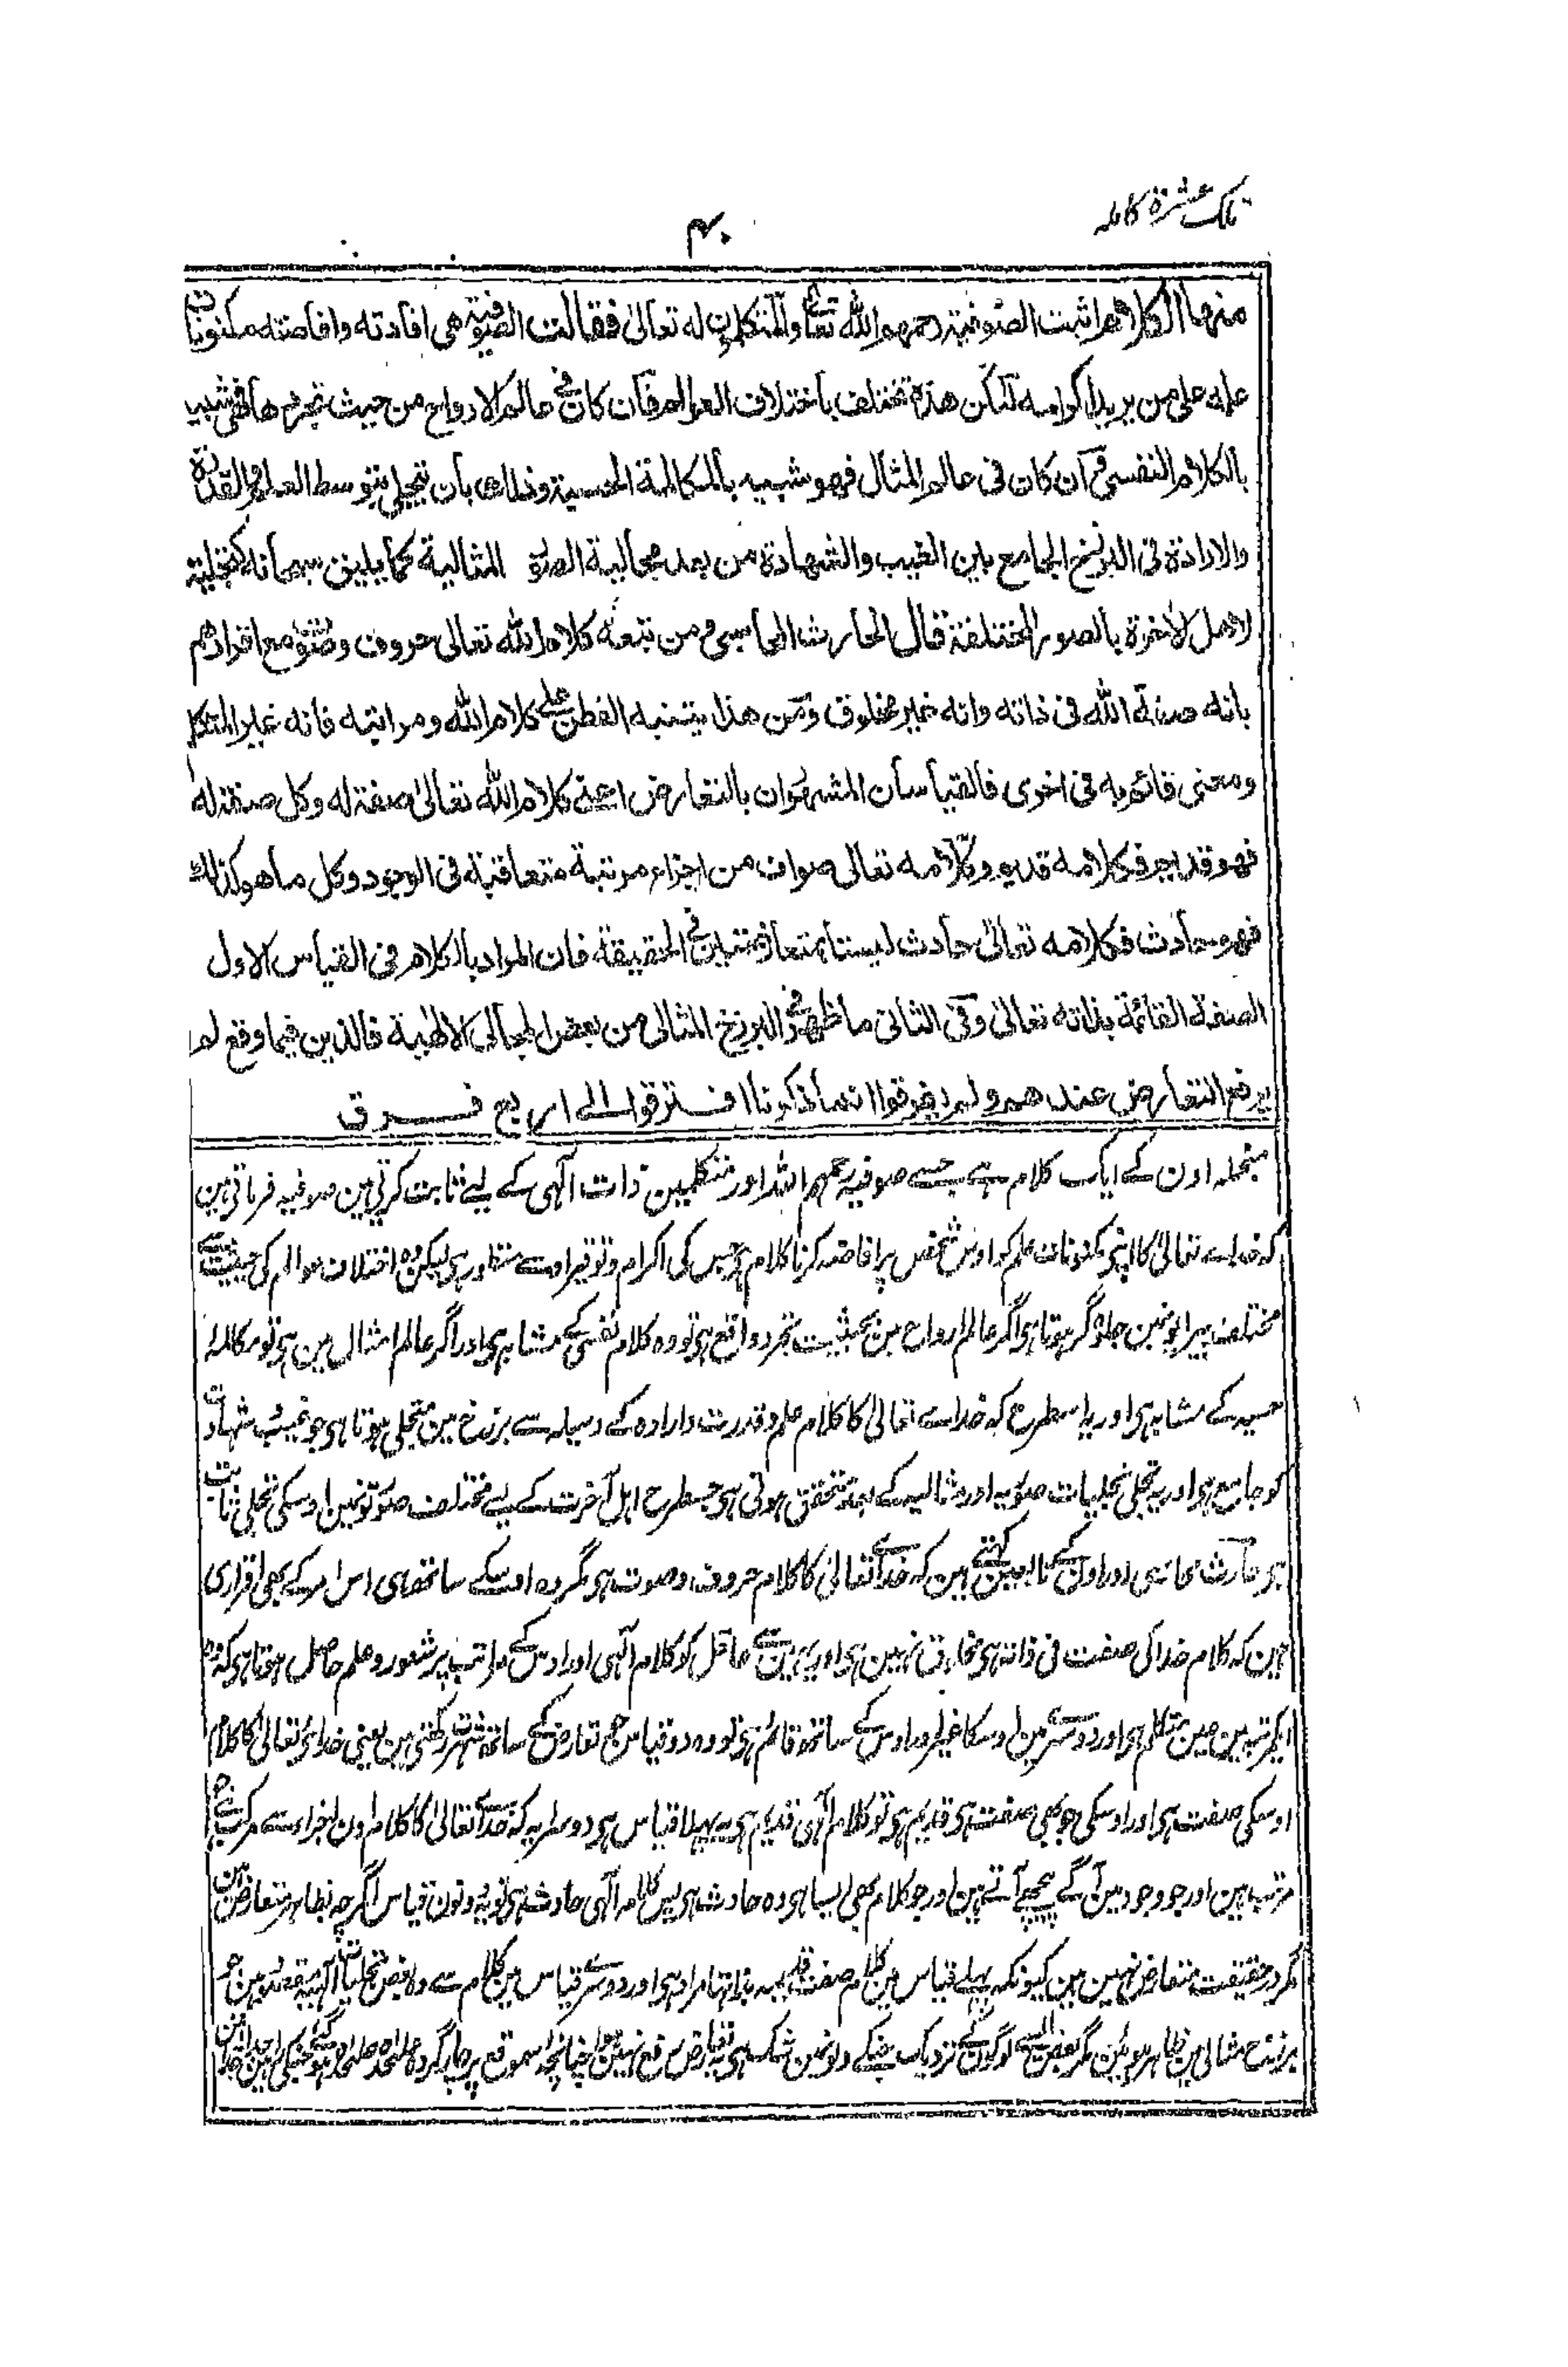 تلک عشرة کاملہ
۴۰
منها الكلام اثبت الصوفية رحمهم الله تعالى والمتكلمين له تعالى فقالت الصوفية هى افادته وافاضته مكنونات
علمه على من يريد اكرامه لكن هذه تختلف باختلاف العوالم فان كان فى عالم الارواح من حيث تجردها فهى شبيه
بالكلام النفسى وان كان فى عالم المثال فهو شبيه بالمكالمة الحسية وذلك بان تجلى بتوسط العلم والقدرة
والارادة فى البرزخ الجامع بين الغيب والشهادة من بعد مجالية الصور المثالية كما يليق سبحانه كتجليته
لاهل الاخرة بالصور المختلفة قال الحارث المحاسبى ومن تبعه كلام الله تعالى حروف وصوت مع اقرارهم
بانه صفة الله فى ذاته وانه غير مخلوق ومن هذا يتنبه الفطن على كلام الله ومراتبه فانه غير المتكلم
ومعنى قائم به فى اخرى فالقياسان المشهوران بالتعارض اعنى كلام الله تعالى صفة له وكل صفة له
فهو قديم فكلامه قديم وكلامه تعالى صواف من اجزاء مرتبة متعاقبة فى الوجود وكل ما هو كذلك
فهو حادث فكلامه تعالى حادث ليستا بمتعارضتين فى الحقيقة فان المراد بالكلام فى القياس الاول
الصفة القائمة بذاته تعالى وفى الثانى ما ظهر فى البرزخ المثالى من بعض المجالى الالهية فالذين فيما وقع لم
يرفع التعارض عندهم ولم يفرقوا انما ذكرنا افترقوا الى اربع فرق
منجملہ اون کے ایک کلام ہے جسے صوفیہ رحمہم اللہ اور متکلمین ذات الٰہی کے لیے ثابت کرتی ہین صوفیہ فرماتی ہین
کہ خداے تعالیٰ کا اپنی مکنونات علم کو اوس شخص پر افاضہ کرنا کلام ہی جس کی اکرام و توقیر اوسے منظور ہی لیکن وہ اختلاف عوالم کی حیثیت سے
مختلف پیرایونمین جلوہ گر ہوتا ہی اگر عالم ارواح مین بحیثیت تجرد واقع ہی تو وہ کلام نفسی کے مشابہ ہی اور اگر عالم امثال مین ہی تو مکالمۂ
حسیہ کے مشابہ ہی اور یہ اسطرح کہ خداے تعالیٰ کا کلام علم و قدرت و ارادہ کے وسیلہ سے برزخ مین متجلی ہوتا ہی جو غیب و شہادت
کو جامع ہی اور یہ تجلی تجلیات صوریہ اور مثالیہ کے بعد متحقق ہوتی ہی جسطرح اہل آخرت کے لیے مختلف صورتونمین اوسکی تجلی ثابت
ہی حارث محاسبی اور اون کے تابعین کہتے ہین کہ خداے تعالیٰ کا کلام حروف و صوت ہی مگر وہ اوسکے ساتھ ہی اس امر کے بھی اقراری
ہین کہ کلام خدا کی صفت فی ذاتہ ہی مخلوق نہین ہی اور یہین سے عاقل کو کلام الٰہی اور اوس کے مراتب پر شعور و علم حاصل ہوتا ہی کہ وہ
ایک مرتبہ مین عین متکلم ہی اور دوسرے مین اوسکا غیر اور اوس کے ساتھ قائم ہی تو وہ دو قیاس جو تعارض کے ساتھ شہرت رکھتی ہین یعنی خداے تعالیٰ کا کلام
اوسکی صفت ہی اور اوسکی جو بھی صفت ہی قدیم ہی تو کلام الٰہی قدیم ہی یہ پہلا قیاس ہی دوسرا یہ کہ خداے تعالیٰ کا کلام اون اجزا سے مرکب ہے جو
مرتب ہین اور جو وجود مین آگے پیچھے آتے ہین اور جو کلام بھی ایسا ہی وہ حادث ہی پس کلام الٰہی حادث ہی تو یہ دونون قیاس اگرچہ بظاہر متعارض ہین
مگر درحقیقت متعارض نہین ہین کیونکہ پہلے قیاس مین کلام صفت قدیمہ بذاتہا مراد ہی اور دوسرے قیاس مین کلام سے وہ بعض تجلیات الٰہیہ مقصود ہین جو
برزخ مثالی مین ظاہر ہوئین مگر بعض ایسے لوگون کے نزدیک جنکے دلونمین شک ہی یہ تعارض رفع نہین ہوا چنانچہ اسموقع پر چار گروہ علٰحدہ علٰحدہ ہوگئے